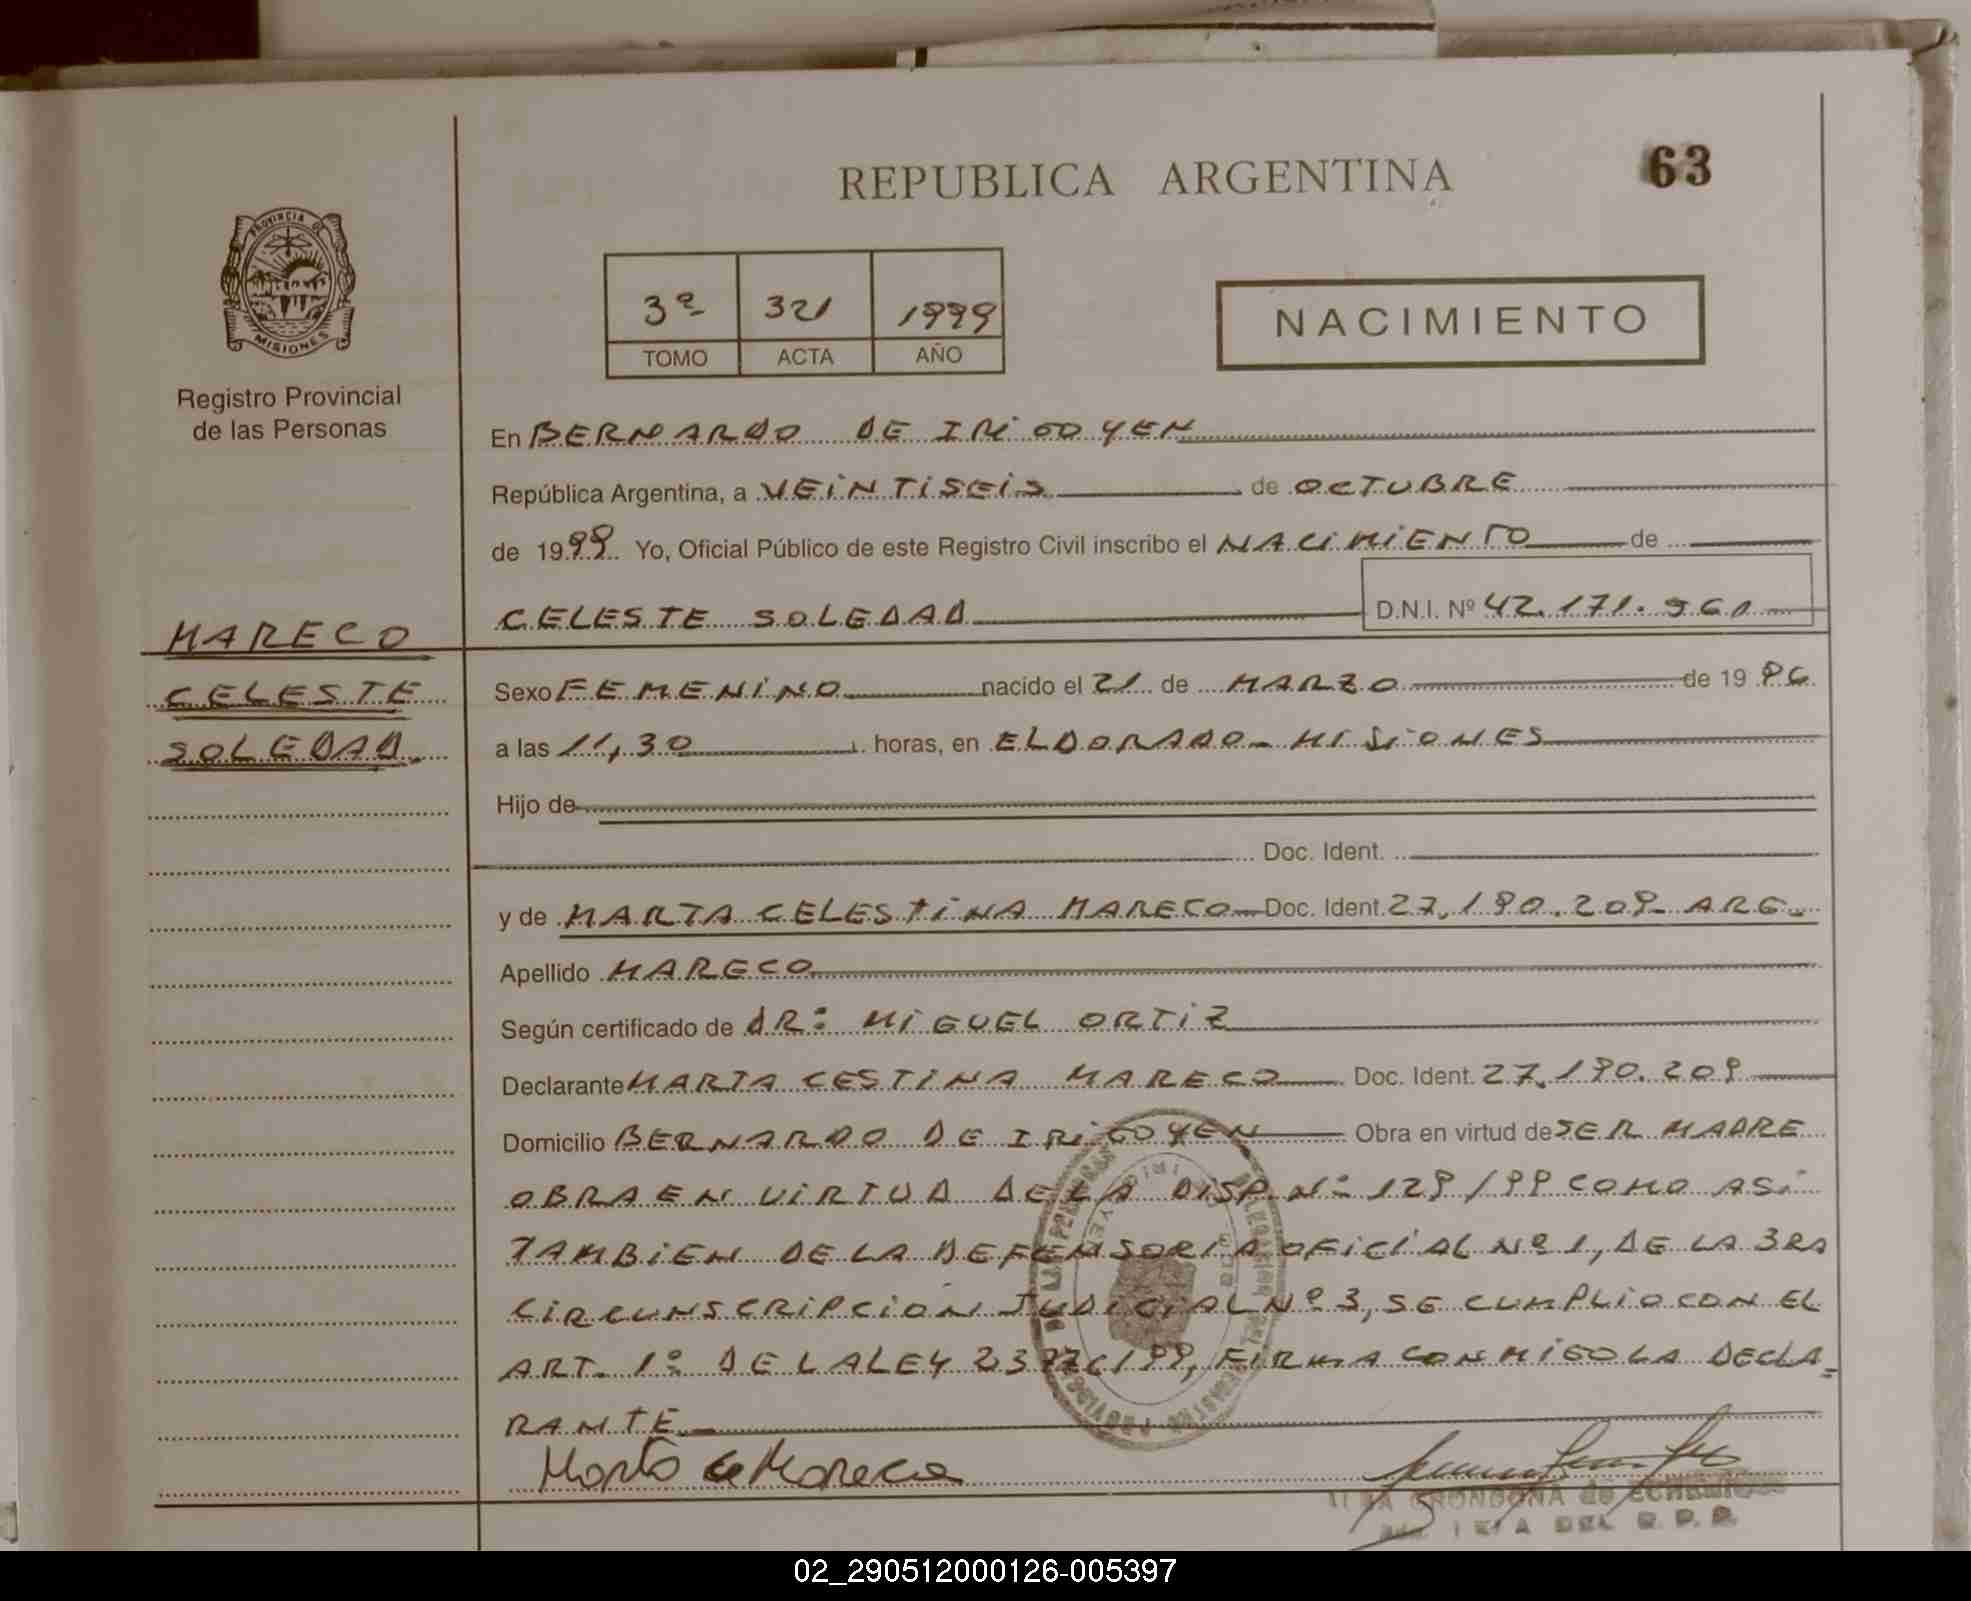 REPUBLICA ARGENTINA
63
PROVINCIA DE MISIONES
Registro Provincial
de las Personas
3ª 321 1999
TOMO ACTA AÑO
NACIMIENTO
En BERNARDO DE IRIGOYEN
República Argentina, a VEINTISEIS de OCTUBRE
de 1999 Yo, Oficial Público de este Registro Civil inscribo el NACIMIENTO de
CELESTE SOLEDAD D.N.I. Nº 42.171.960
MARECO
CELESTE
SOLEDAD
Sexo FEMENINO nacido el 21 de MARZO de 19 96
a las 11,30 horas, en ELDORADO - MISIONES
Hijo de
Doc. Ident.
y de MARTA CELESTINA MARECO Doc. Ident. 27.190.209 ARG.
Apellido MARECO
Según certificado de DR: MIGUEL ORTIZ
Declarante MARTA CESTINA MARECO Doc. Ident. 27.190.209
Domicilio BERNARDO DE IRIGOYEN Obra en virtud de SER MADRE
OBRA EN VIRTUD DE LA DISP. Nº 129/99 COMO ASI
TAMBIEN DE LA DEFENSORIA OFICIAL Nº 1, DE LA 3RA
CIRCUNSCRIPCION JUDICIAL Nº 3, SE CUMPLIO CON EL
ART. 1º DE LA LEY 23776/99, FIRMA CONMIGO LA DECLA=
RANTE
Marta C Mareco
GRONDONA de
DEL R. P. P.
02_290512000126-005397